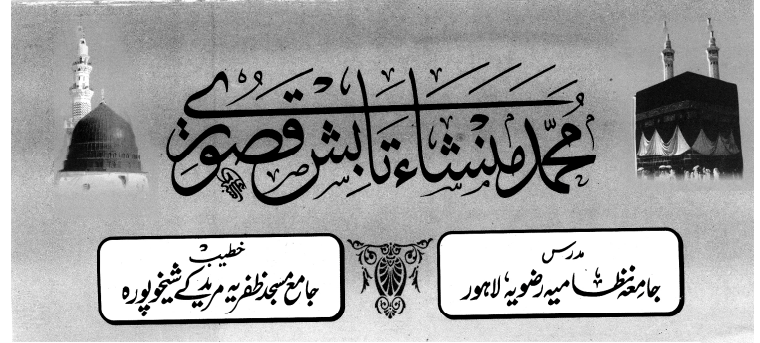 محمد منشاء تابش قصوری
مدرس
جامعہ نظامیہ رضویہ لاہور
خطیب
جامع مسجد ظفریہ مریدکے شیخوپورہ